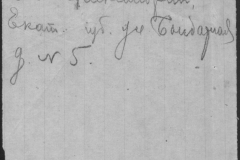 Екат. губ. ул Бондарная
д. N 5.